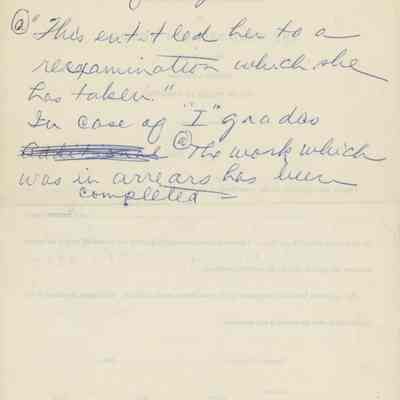 ⓐ "This entitled her to a
reexamination which she
has taken."
In case of "I" grades
ⓐ The work which
was in arrears has been
completed –